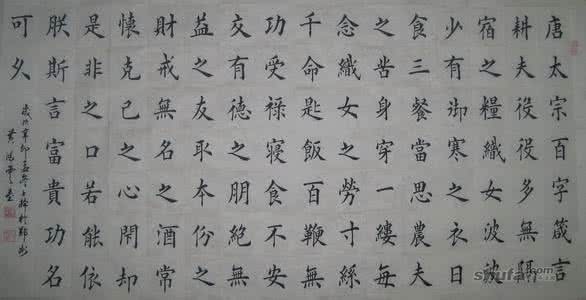 唐太宗百字箴言
耕夫役役多無隔
宿之糧織女波波
少有御寒之衣日
食三餐當思農夫
之苦身穿一縷每
念織女之勞寸絲
千命匙飯百鞭無
功受祿寢食不安
交有德之朋絕無
益之友取本份之
財戒無名之酒常
懷克己之心閉却
是非之口若能依
朕斯言富貴功名
可久
歲次辛卯